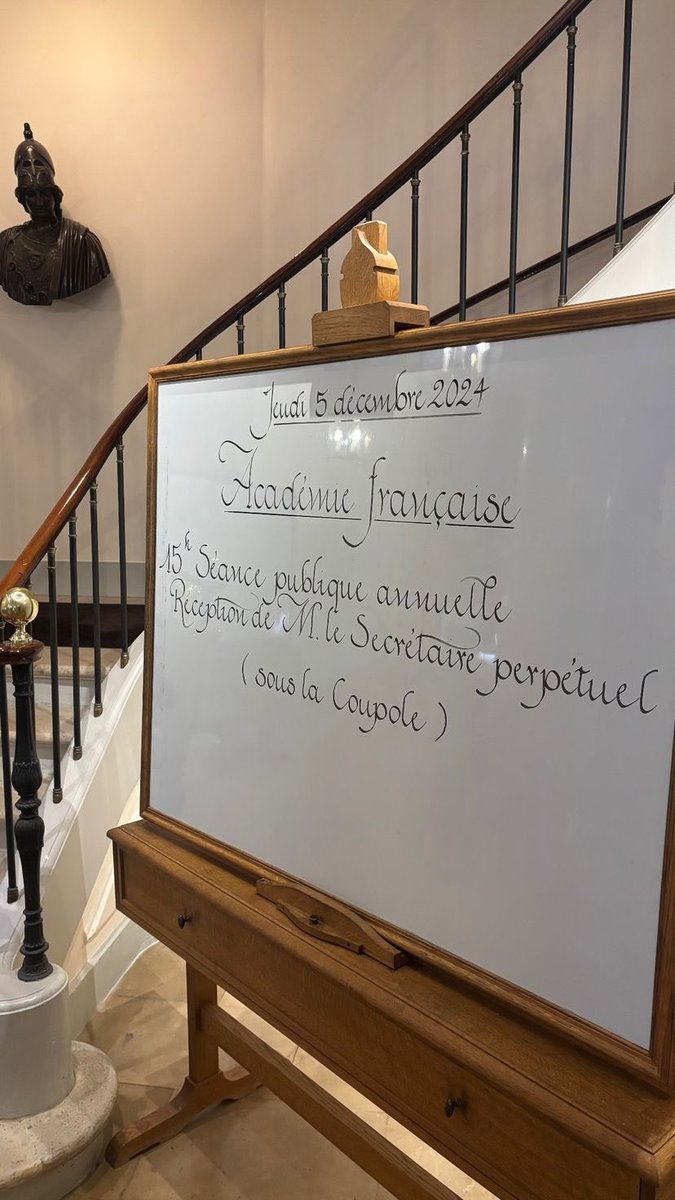 Jeudi 5 décembre 2024
Académie française
15h Séance publique annuelle
Réception de M. le Secrétaire perpétuel
(sous la Coupole)